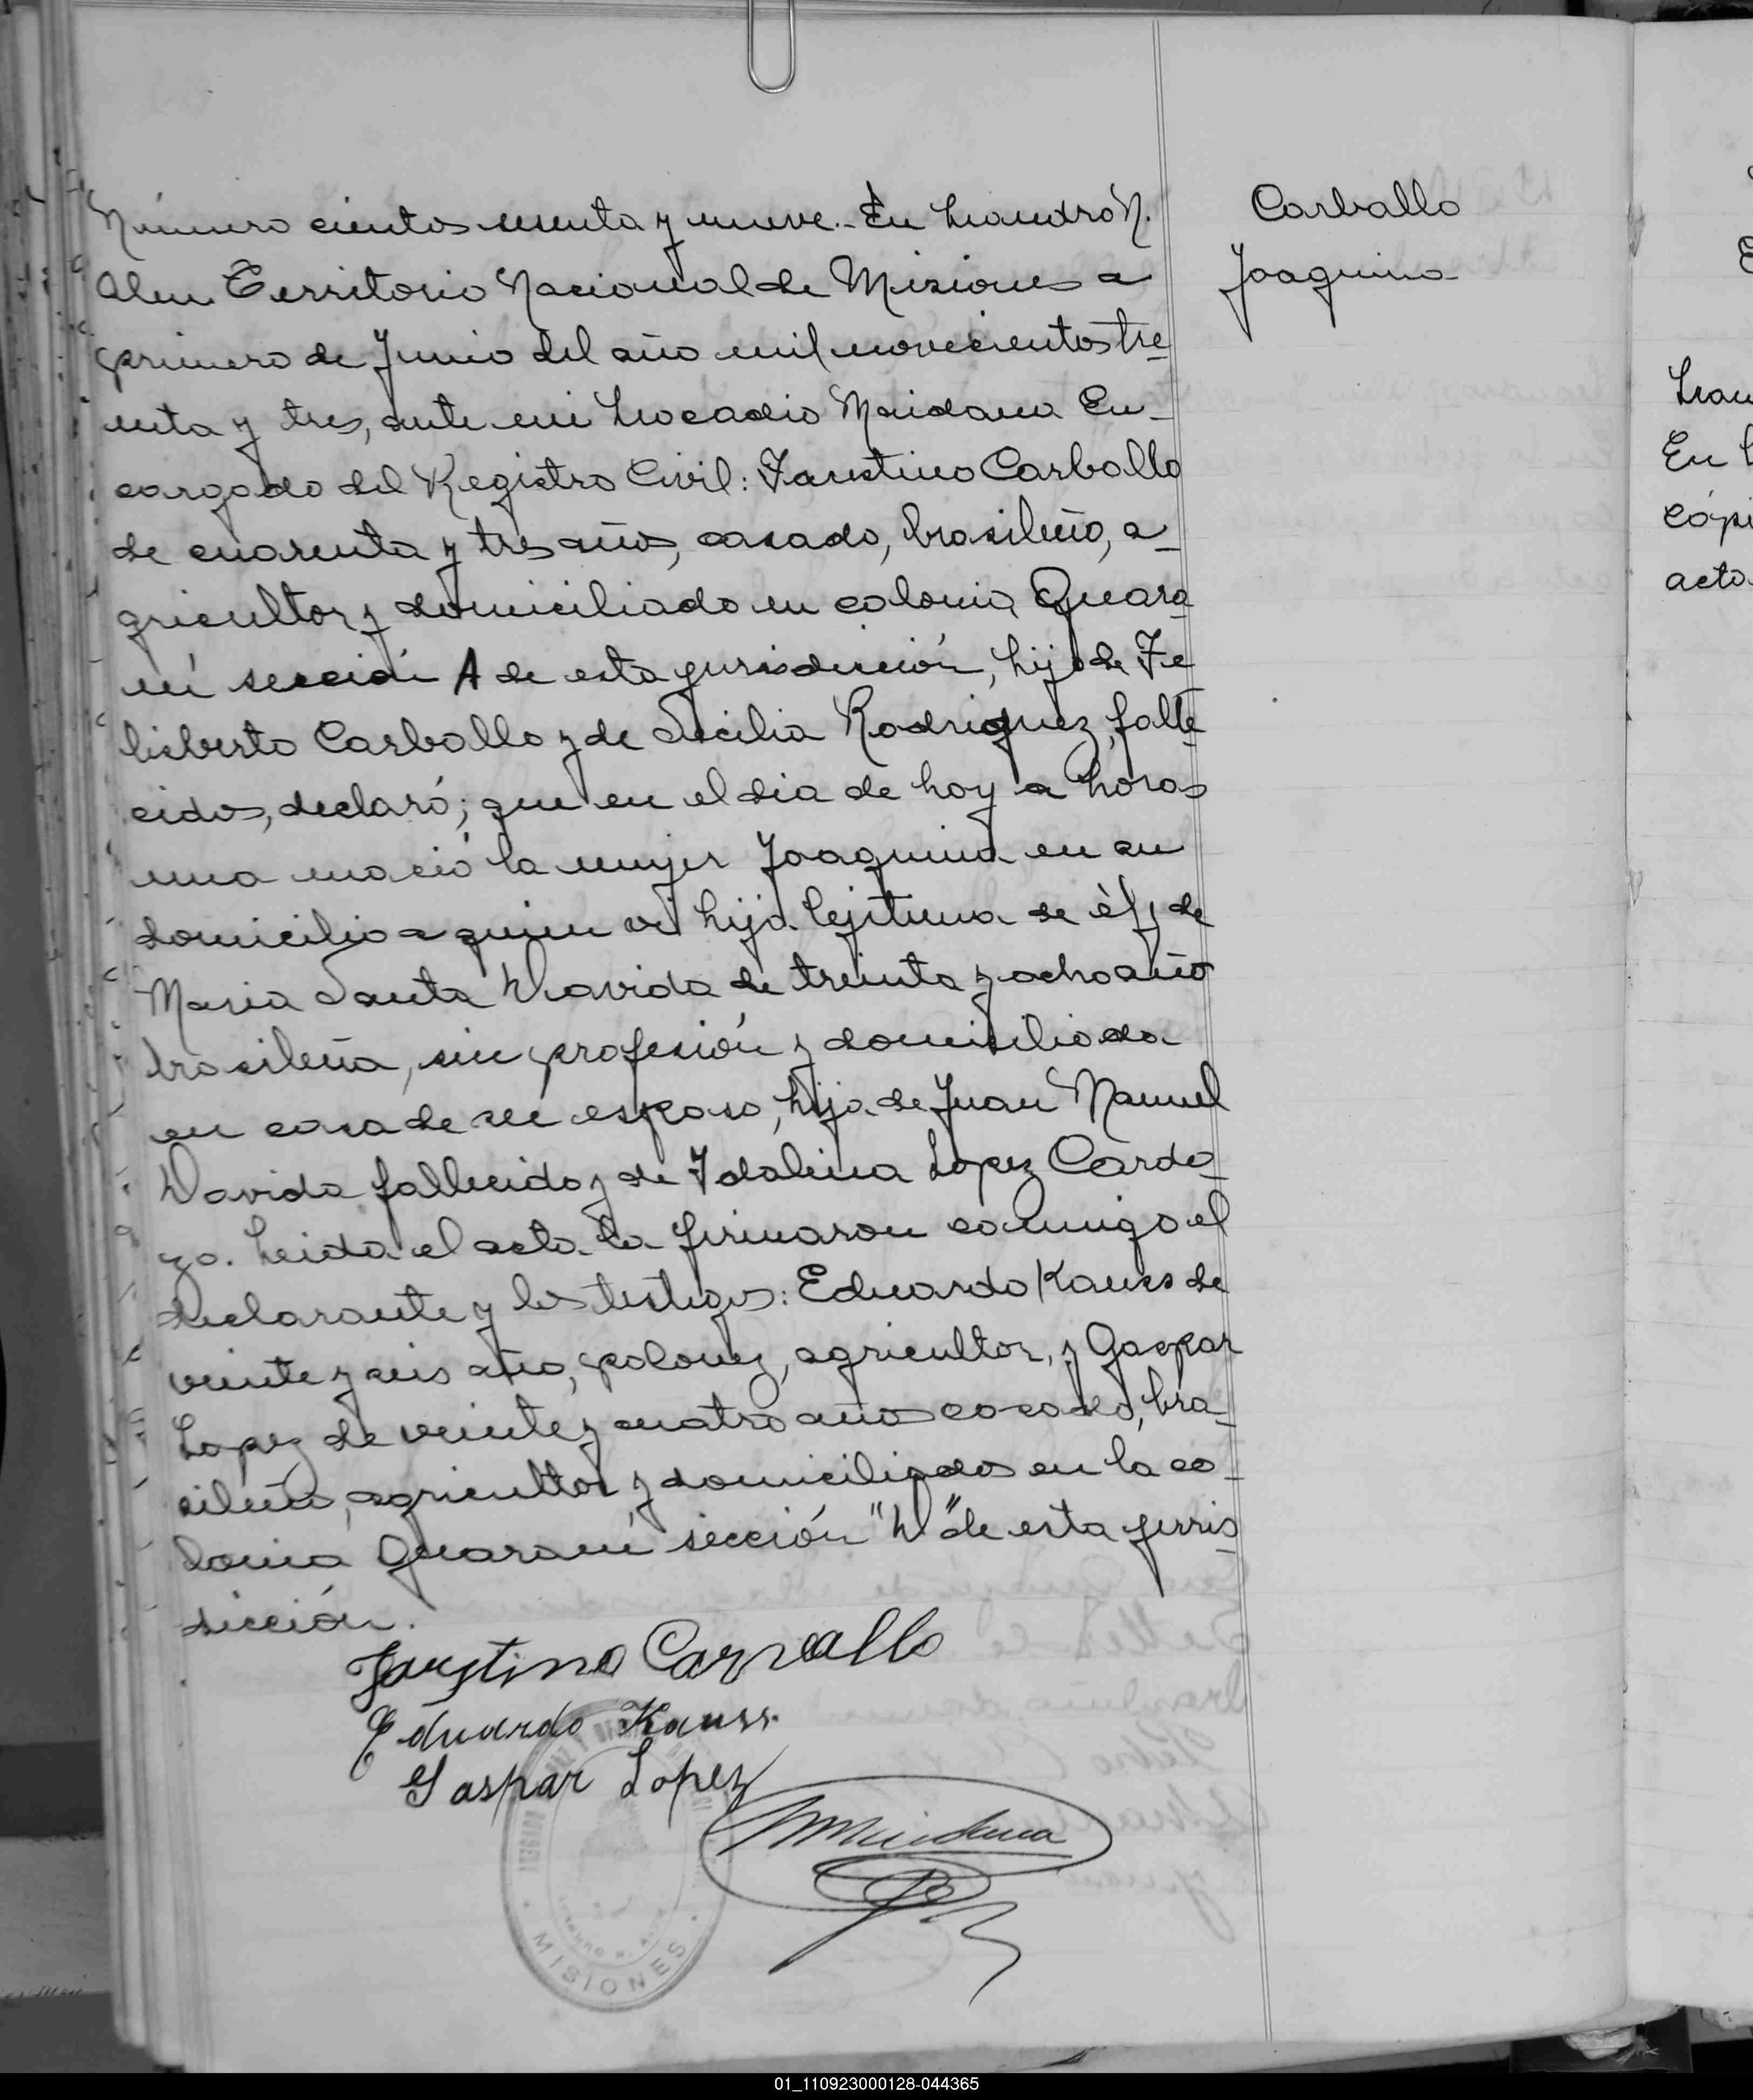 Número ciento sesenta y nueve.- En Leandro N.
Alem Territorio Nacional de Misiones a
primero de Junio del año mil novecientos tre-
inta y tres, ante mi Leocadio Maidana En-
cargado del Registro Civil: Faustino Carballo
de cuarenta y tres años, casado, brasileño, a-
gricultor y domiciliado en colonia Guara-
ní sección A de esta jurisdicción, hijo de Fe
lisberto Carballo y de Cecilia Rodriguez, falle-
cidos, declaró; que en el dia de hoy a horas
una nació la mujer Joaquina en su
domicilio a quien vi hija lejitima de él y de
Maria Santa Davida de treinta y ocho año
brasileña, sin profesión y domiciliada
en casa de su esposo, hija de Juan Manuel
Davida fallecido y de Idalina Lopez Cardo-
zo. Leida el acta la firmaron conmigo el
declarante y los testigos: Eduardo Kauss de
veinte y seis año, polonez, agricultor, y Gaspar
Lopez de veinte y cuatro años casado, bra-
sileño, agricultor y domiciliados en la co-
lonia Guaraní sección "D" de esta juris-
dicción.
Faustino Carvallo
Eduardo Kauss.
Gaspar Lopez
Maidana
MISIONES
Carballo
Joaquina
En
acta
01_110923000128-044365